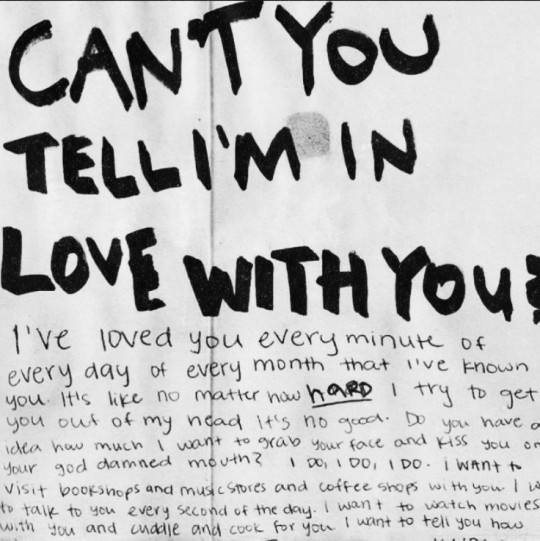 CAN'T YOU
TELL I'M IN
LOVE WITH YOU?
I've loved you every minute of
every day of every month that I've known
you. It's like no matter how hARD I try to get
you out of my head It's no good. Do you have a
idea how much I want to grab your face and kiss you on
your god damned mouth? I DO, I DO, I DO. I WANT to
visit bookshops and music stores and coffee shops with you. I
to talk to you every second of the day. I want to watch movies
with you and cuddle and cook for you. I want to tell you how